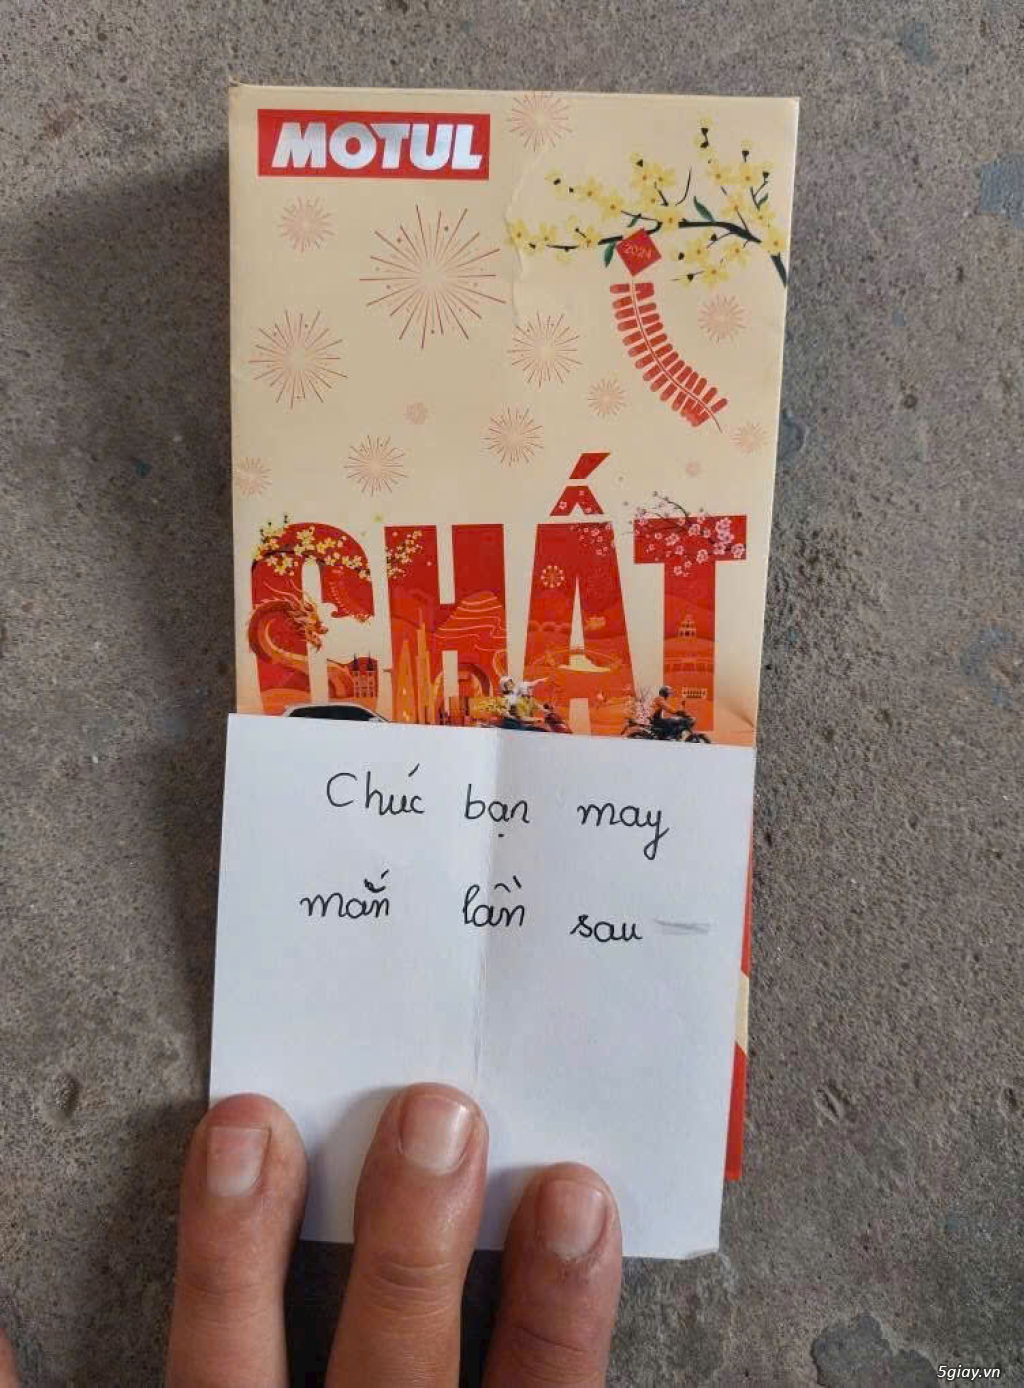 MOTUL
2024
CHẤT
Chúc bạn may
mắn lần sau
5giay.vn